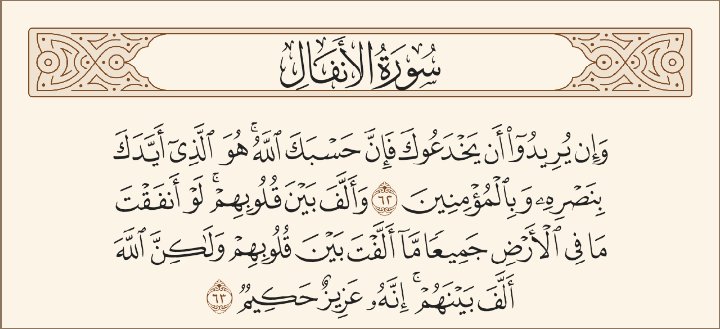 سُورَةُ الأَنفَالِ
وَإِن يُرِيدُوٓا۟ أَن يَخْدَعُوكَ فَإِنَّ حَسْبَكَ ٱللَّهُ ۚ هُوَ ٱلَّذِىٓ أَيَّدَكَ
بِنَصْرِهِۦ وَبِٱلْمُؤْمِنِينَ ٦٢ وَأَلَّفَ بَيْنَ قُلُوبِهِمْ ۚ لَوْ أَنفَقْتَ
مَا فِى ٱلْأَرْضِ جَمِيعًا مَّآ أَلَّفْتَ بَيْنَ قُلُوبِهِمْ وَلَٰكِنَّ ٱللَّهَ
أَلَّفَ بَيْنَهُمْ ۚ إِنَّهُۥ عَزِيزٌ حَكِيمٌ ٦٣